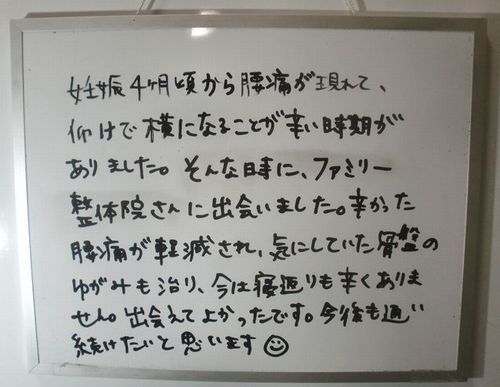 妊娠4ヶ月頃から腰痛が現れて、
仰けで横になることが辛い時期が
ありました。そんな日寺に、ファミリー
整体院さんに出会いました。辛かった
腰痛が軽減され、気にしていた骨盤の
ゆがみも治り、今は寝返りも辛くありま
せん。出会えてよかったです。今後も通い
続けたいと思います☺